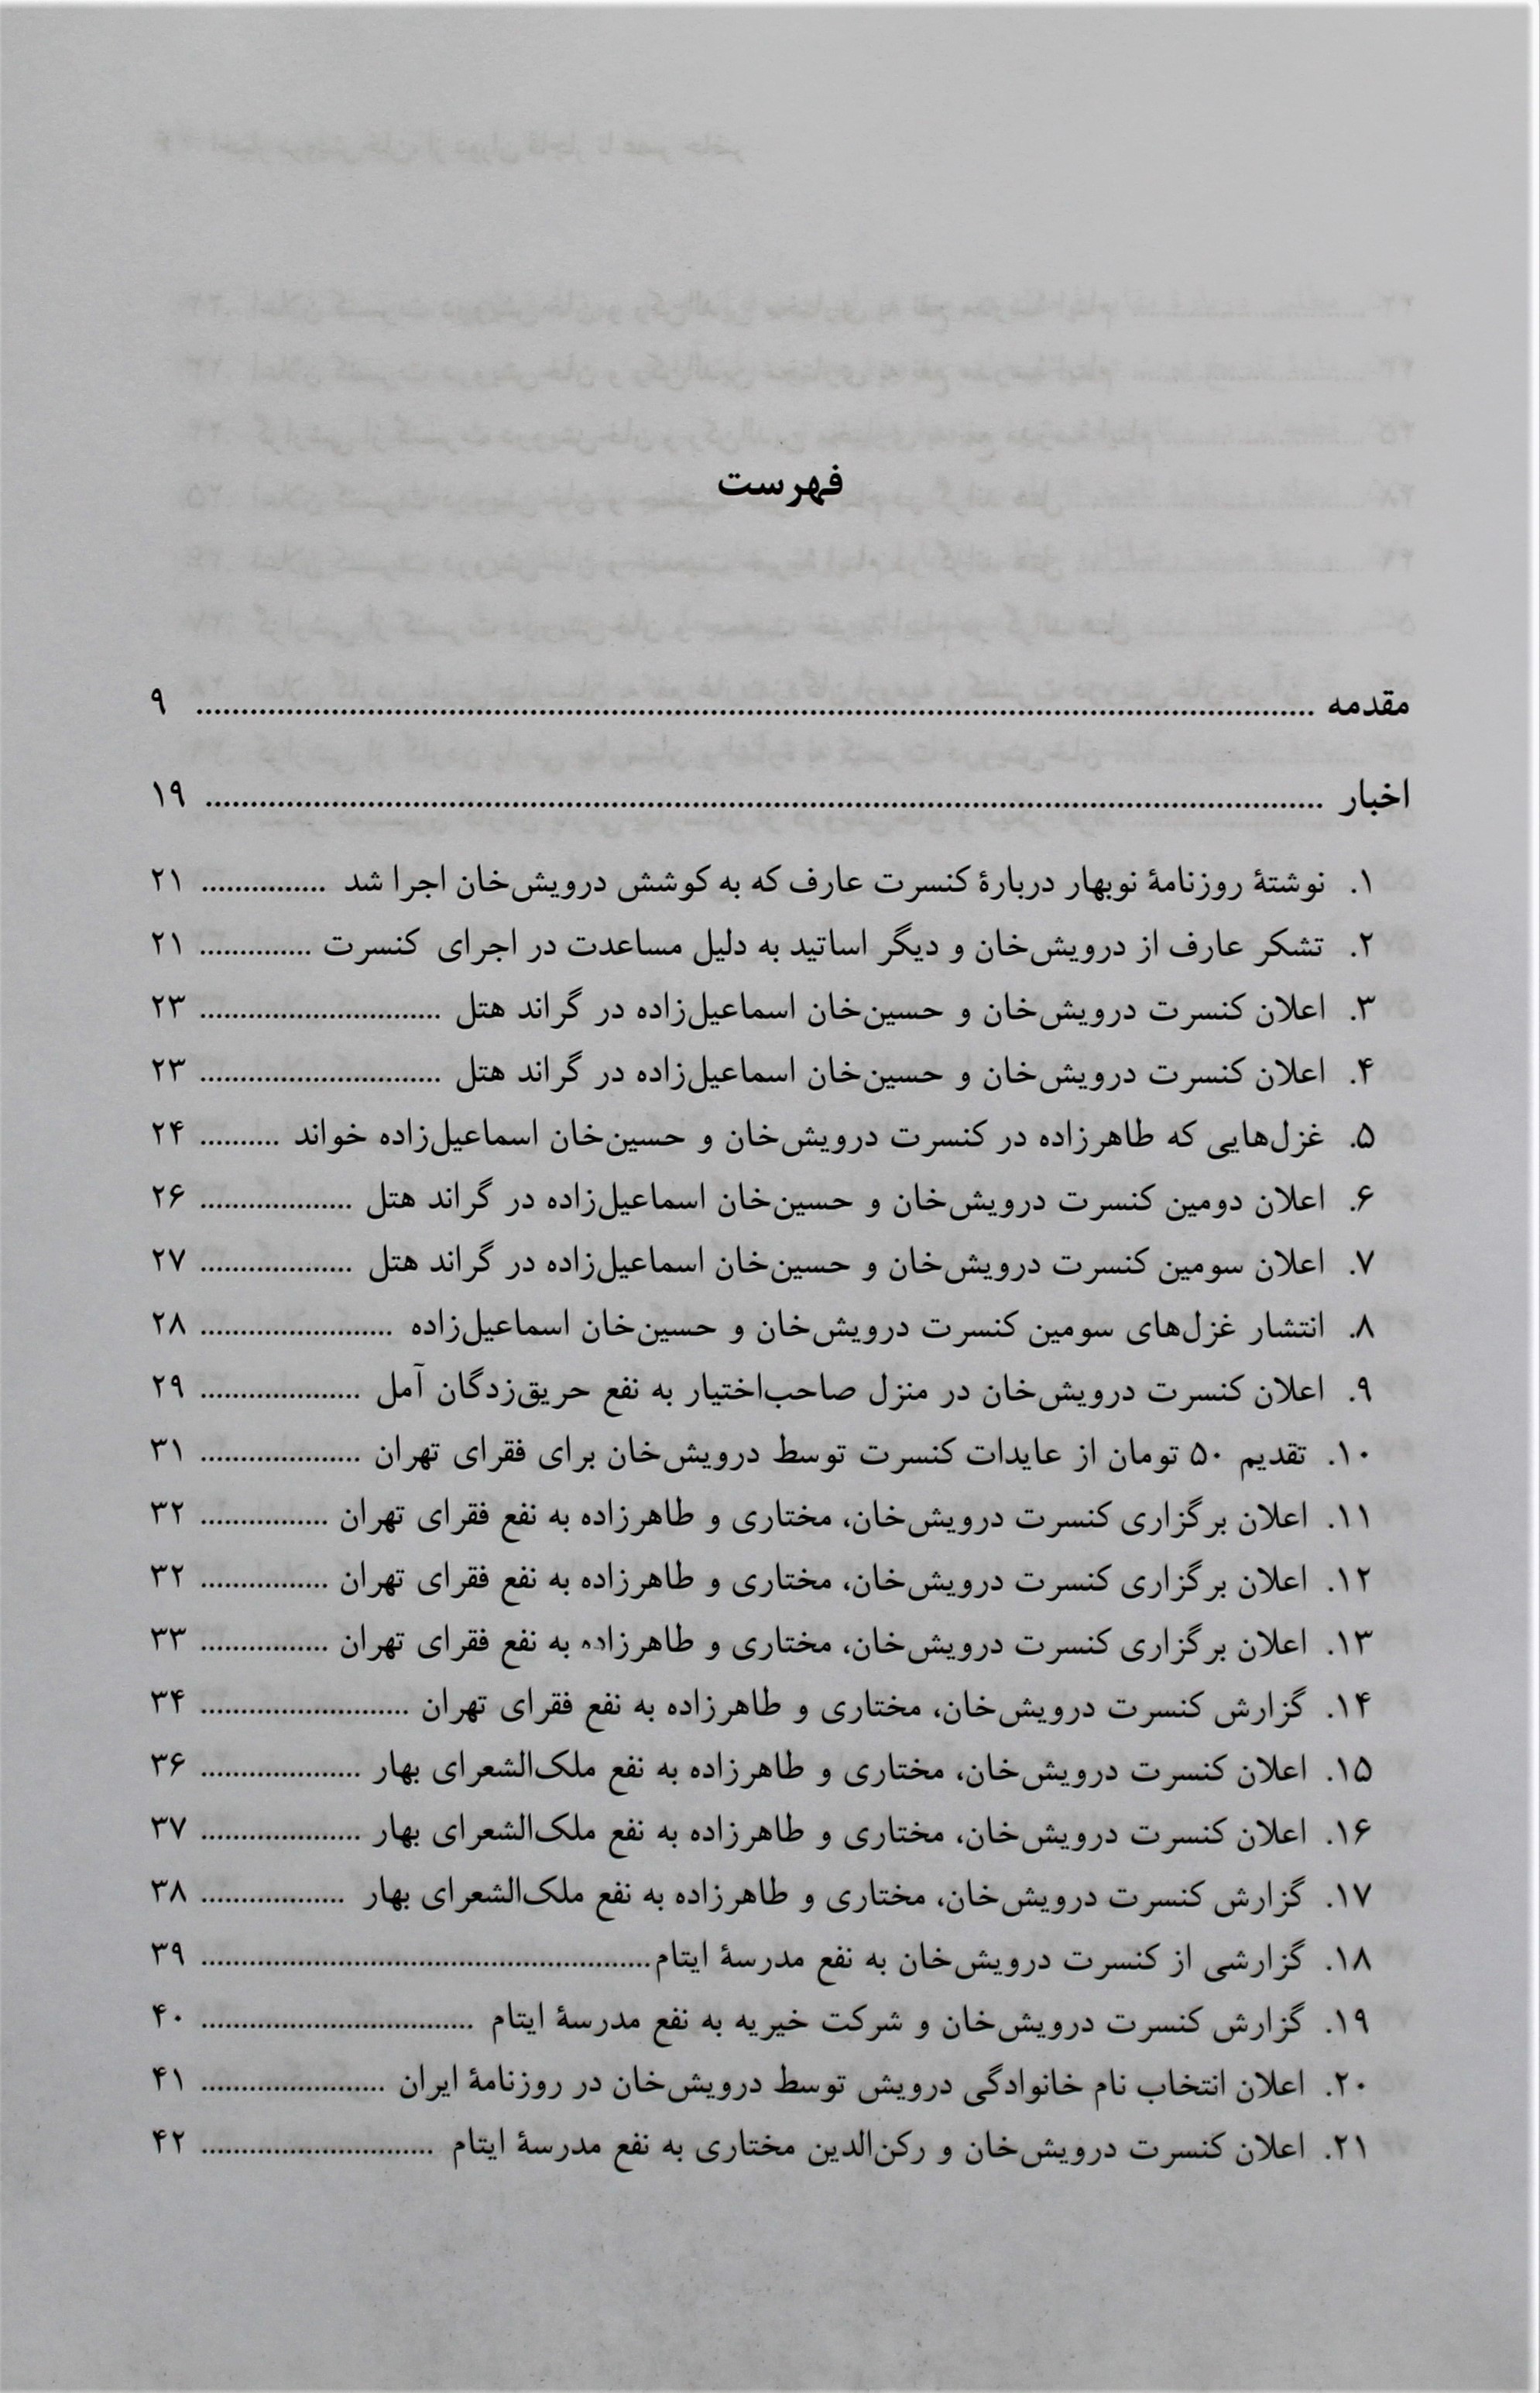 فهرست
مقدمه ........................................ ۹
اخبار ........................................ ۱۹
۱. نوشتهٔ روزنامهٔ نوبهار دربارهٔ کنسرت عارف که به کوشش درویش‌خان اجرا شد ............... ۲۱
۲. تشکر عارف از درویش‌خان و دیگر اساتید به دلیل مساعدت در اجرای کنسرت .............. ۲۱
۳. اعلان کنسرت درویش‌خان و حسین‌خان اسماعیل‌زاده در گراند هتل .............................. ۲۳
۴. اعلان کنسرت درویش‌خان و حسین‌خان اسماعیل‌زاده در گراند هتل .............................. ۲۳
۵. غزل‌هایی که طاهرزاده در کنسرت درویش‌خان و حسین‌خان اسماعیل‌زاده خواند .......... ۲۴
۶. اعلان دومین کنسرت درویش‌خان و حسین‌خان اسماعیل‌زاده در گراند هتل ................... ۲۶
۷. اعلان سومین کنسرت درویش‌خان و حسین‌خان اسماعیل‌زاده در گراند هتل ................... ۲۷
۸. انتشار غزل‌های سومین کنسرت درویش‌خان و حسین‌خان اسماعیل‌زاده ........................ ۲۸
۹. اعلان کنسرت درویش‌خان در منزل صاحب‌اختیار به نفع حریق‌زدگان آمل .................... ۲۹
۱۰. تقدیم ۵۰ تومان از عایدات کنسرت توسط درویش‌خان برای فقرای تهران .................... ۳۱
۱۱. اعلان برگزاری کنسرت درویش‌خان، مختاری و طاهرزاده به نفع فقرای تهران ................ ۳۲
۱۲. اعلان برگزاری کنسرت درویش‌خان، مختاری و طاهرزاده به نفع فقرای تهران ................ ۳۲
۱۳. اعلان برگزاری کنسرت درویش‌خان، مختاری و طاهرزاده به نفع فقرای تهران ................ ۳۳
۱۴. گزارش کنسرت درویش‌خان، مختاری و طاهرزاده به نفع فقرای تهران .......................... ۳۴
۱۵. اعلان کنسرت درویش‌خان، مختاری و طاهرزاده به نفع ملک‌الشعرای بهار .................... ۳۶
۱۶. اعلان کنسرت درویش‌خان، مختاری و طاهرزاده به نفع ملک‌الشعرای بهار .................... ۳۷
۱۷. گزارش کنسرت درویش‌خان، مختاری و طاهرزاده به نفع ملک‌الشعرای بهار .................. ۳۸
۱۸. گزارشی از کنسرت درویش‌خان به نفع مدرسهٔ ایتام........................................ ۳۹
۱۹. گزارش کنسرت درویش‌خان و شرکت خیریه به نفع مدرسهٔ ایتام .................................. ۴۰
۲۰. اعلان انتخاب نام خانوادگی درویش توسط درویش‌خان در روزنامهٔ ایران ....................... ۴۱
۲۱. اعلان کنسرت درویش‌خان و رکن‌الدین مختاری به نفع مدرسهٔ ایتام ............................. ۴۲